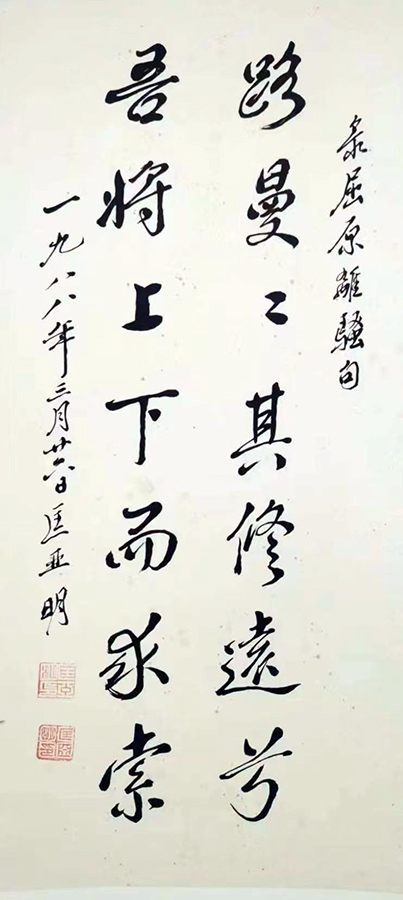 录屈原離騷句
路曼〻其修遠兮
吾将上下而求索
一九八八年三月廿六日匡亚明